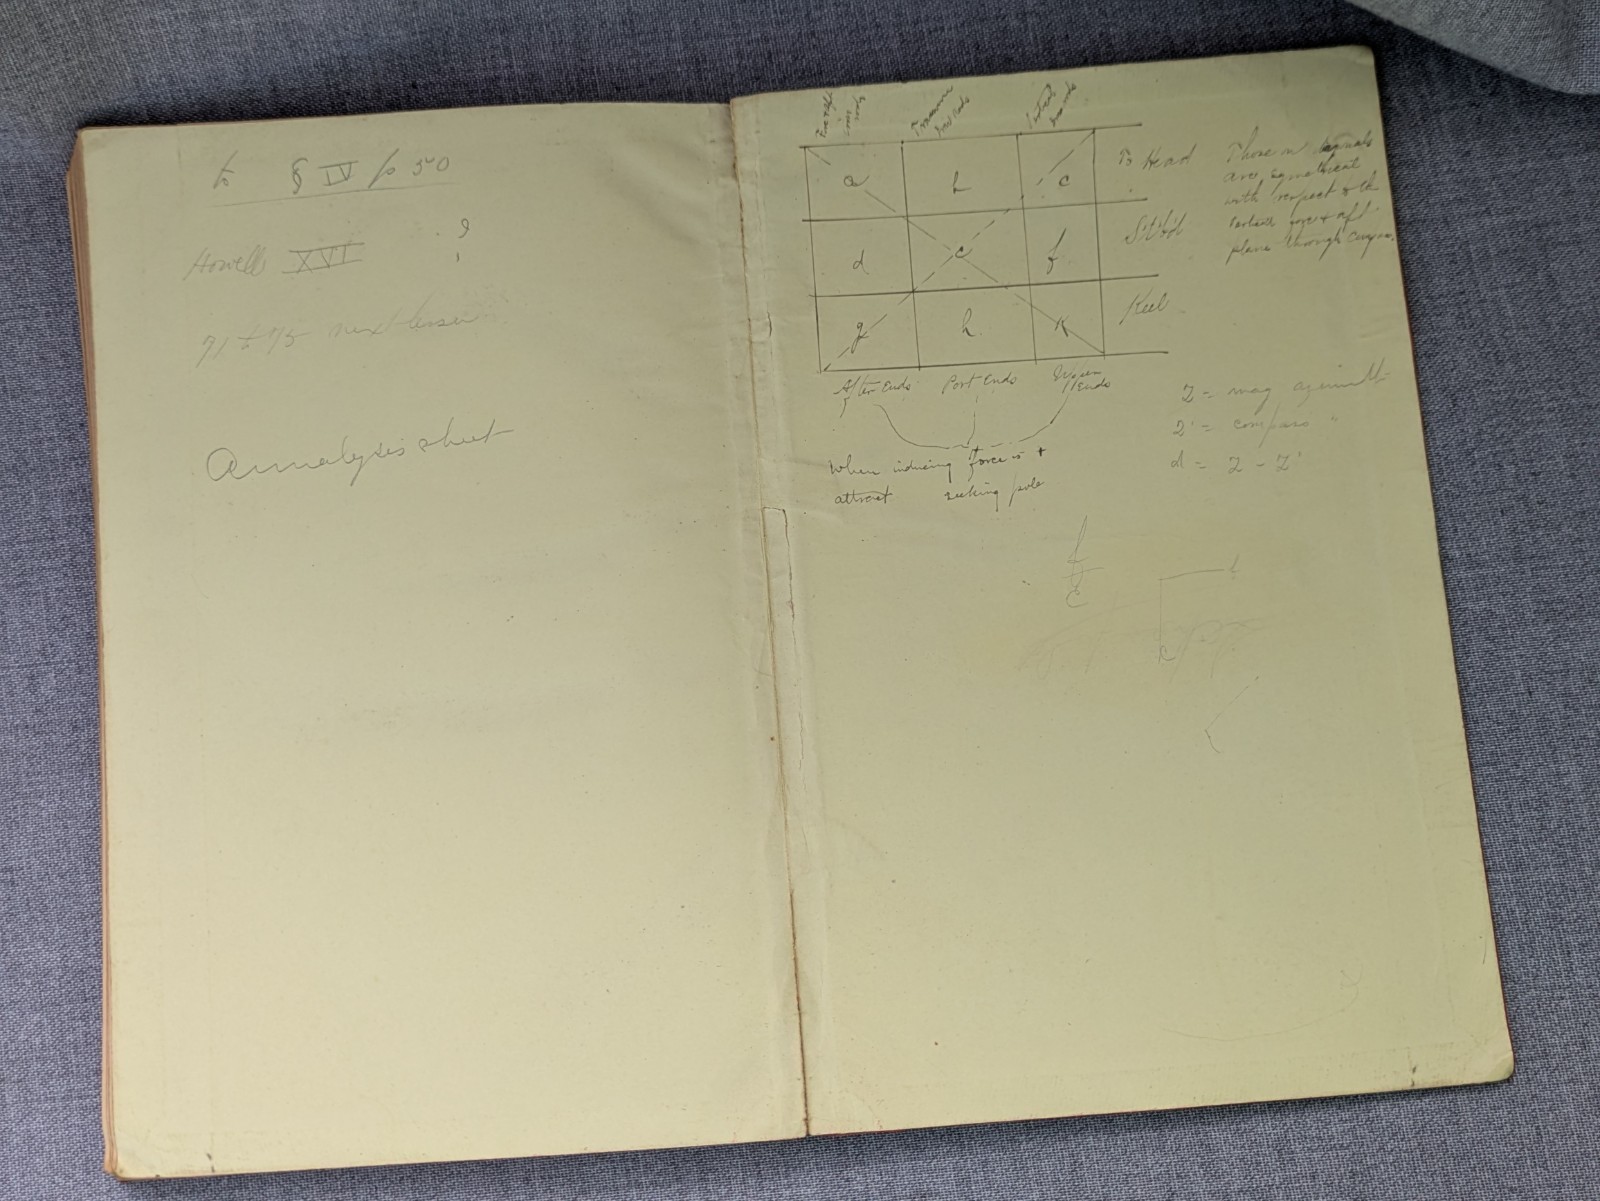 to § IV p 50
Howell XVI ?
71 to 75 next lesson
Annalysis sheet
Fore & aft
iron rods
Transverse
iron rods
Vertical
iron rods
a b c To Head
d e f St'b'd
g h k Keel
After Ends Port Ends Upper Ends
When inducing force is +
attract seeking pole
Those on diagonals
are symmetrical
with respect to the
vertical fore & aft
plane through compass.
Z = mag azimuth
Z' = compass "
d = Z - Z'
f
c
f
c